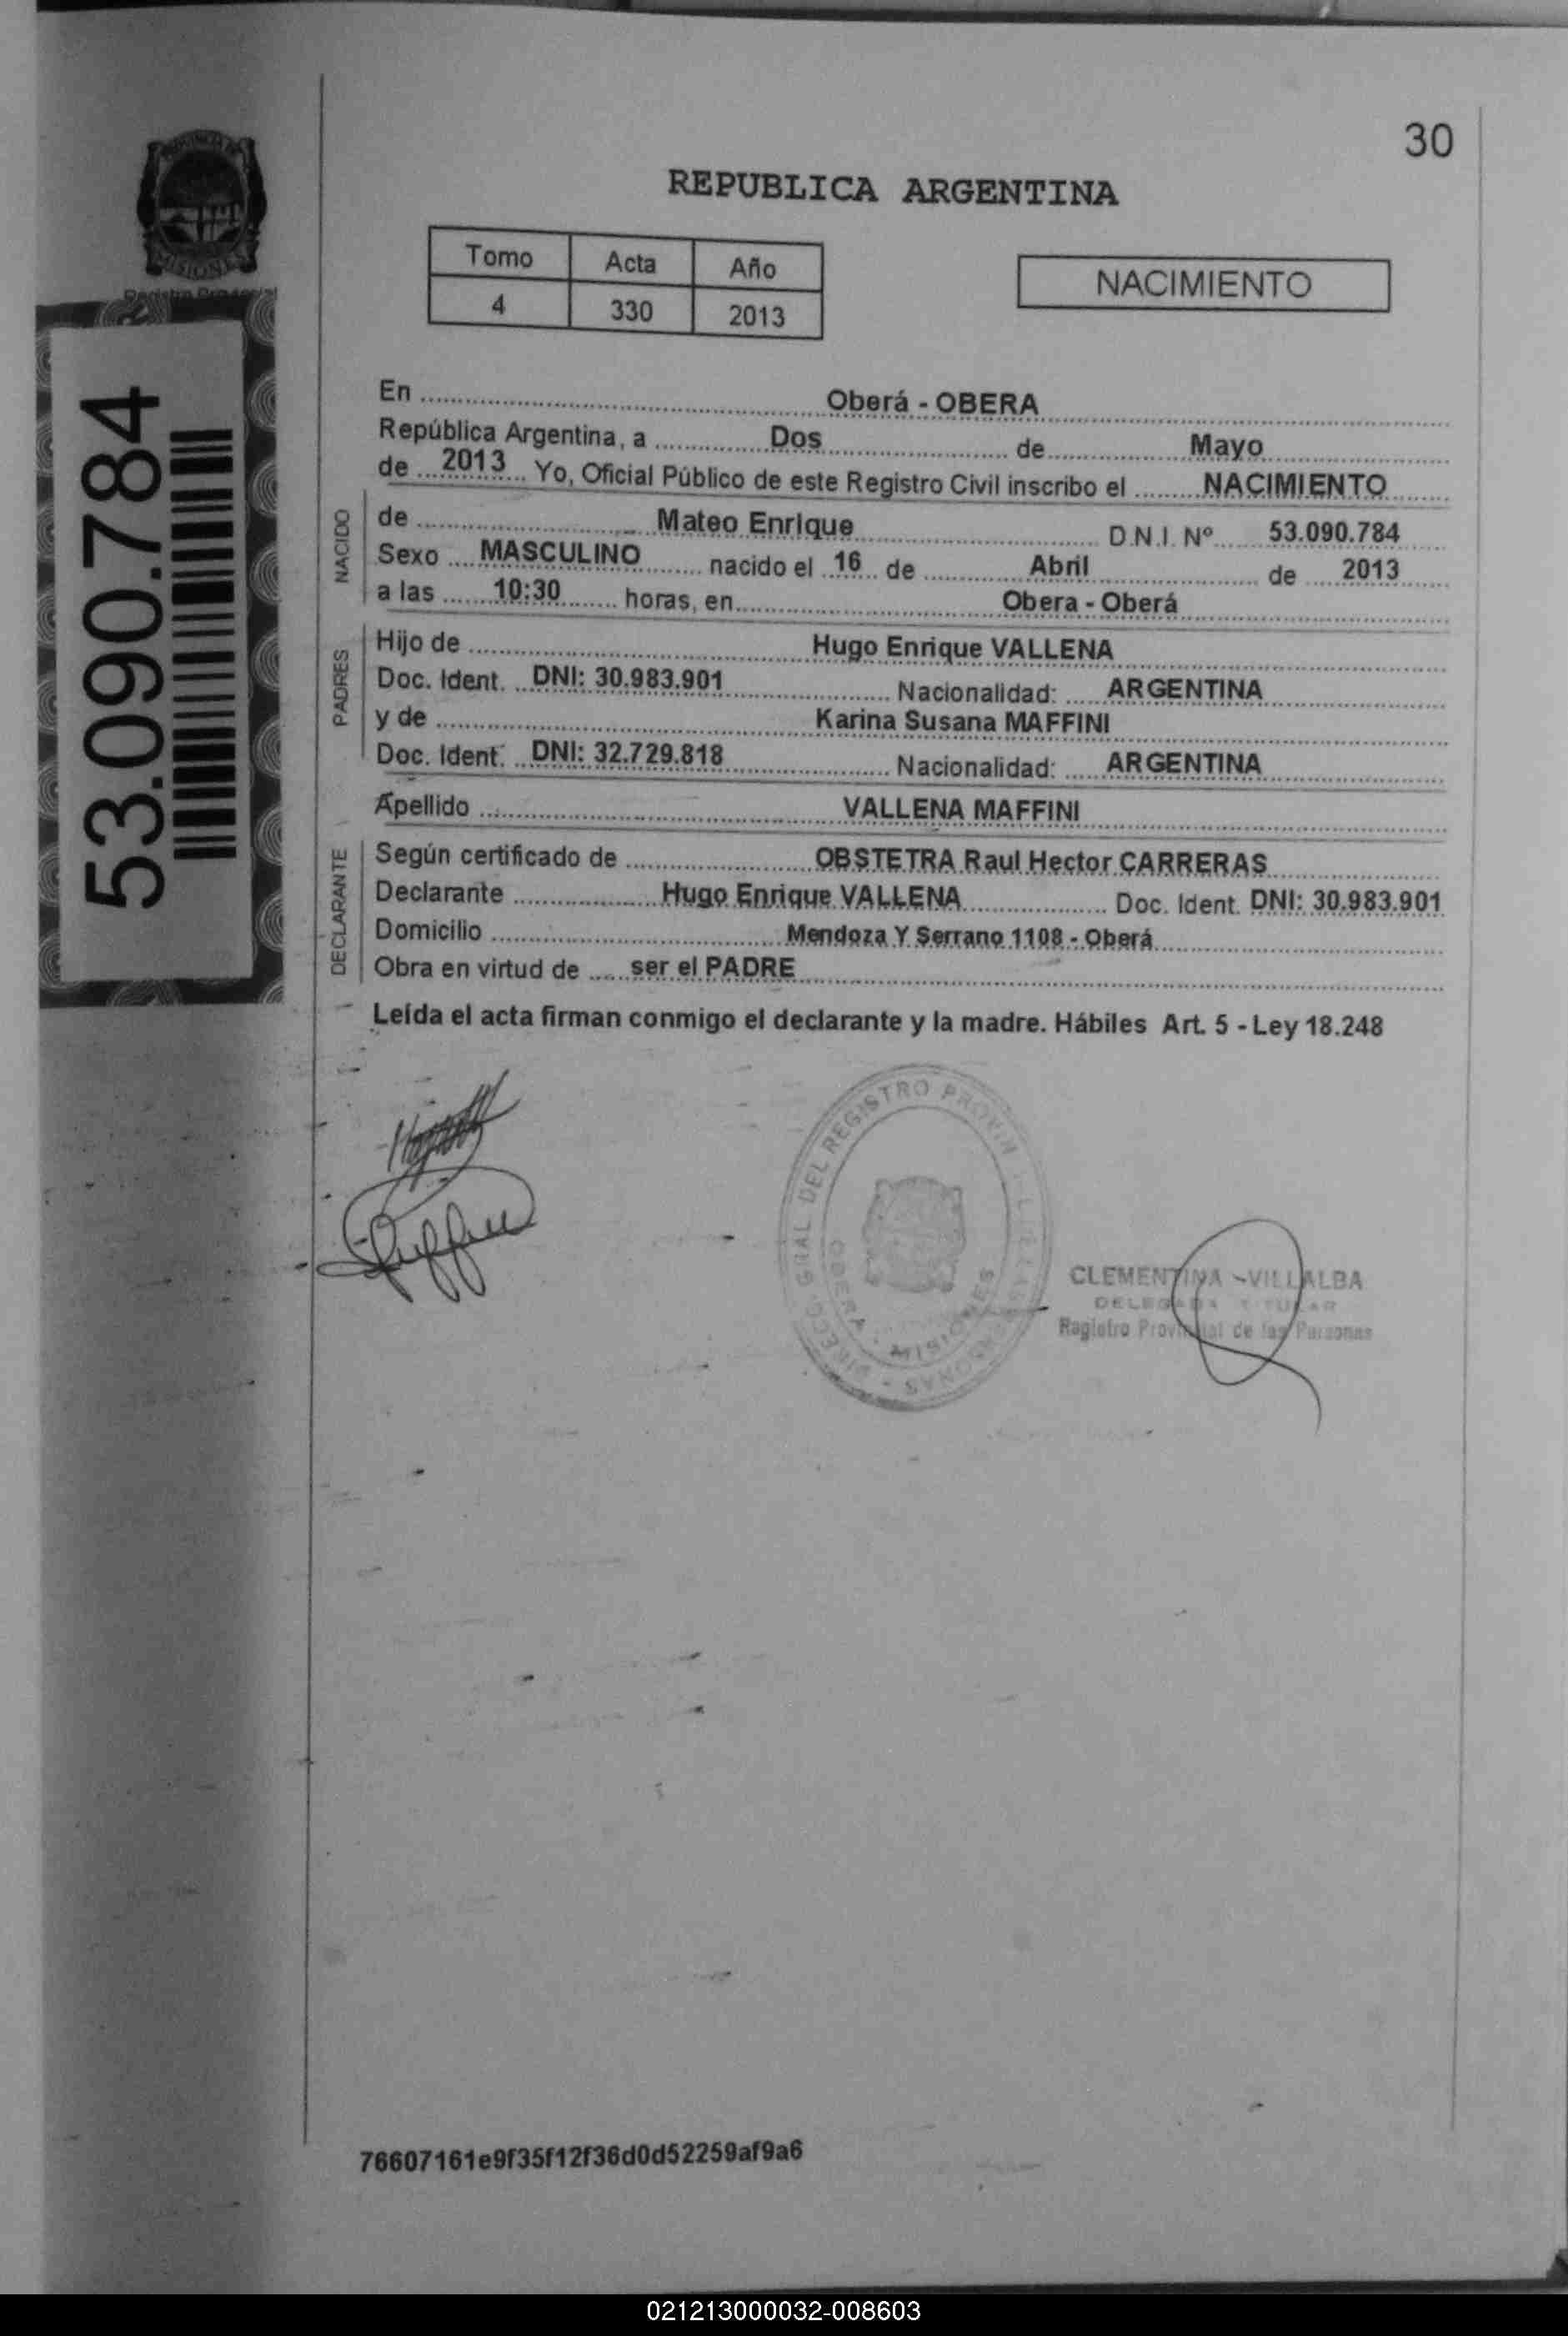 30
REPUBLICA ARGENTINA
Tomo Acta Año
4 330 2013
NACIMIENTO
PROVINCIA DE
MISIONES
Registro Provincial
53.090.784
En Oberá - OBERA
República Argentina, a Dos de Mayo
de 2013 Yo, Oficial Público de este Registro Civil inscribo el NACIMIENTO
NACIDO
de Mateo Enrique D.N.I. Nº 53.090.784
Sexo MASCULINO nacido el 16 de Abril de 2013
a las 10:30 horas, en Obera - Oberá
PADRES
Hijo de Hugo Enrique VALLENA
Doc. Ident. DNI: 30.983.901 Nacionalidad: ARGENTINA
y de Karina Susana MAFFINI
Doc. Ident. DNI: 32.729.818 Nacionalidad: ARGENTINA
Apellido VALLENA MAFFINI
DECLARANTE
Según certificado de OBSTETRA Raul Hector CARRERAS
Declarante Hugo Enrique VALLENA Doc. Ident. DNI: 30.983.901
Domicilio Mendoza Y Serrano 1108 - Oberá
Obra en virtud de ser el PADRE
Leída el acta firman conmigo el declarante y la madre. Hábiles Art. 5 - Ley 18.248
DIREC. GRAL DEL REGISTRO PERSONAS
OBERA - MISIONES
CLEMENTINA VILLALBA
DELEGADA TITULAR
Registro Provincial de las Personas
76607161e9f35f12f36d0d52259af9a6
021213000032-008603